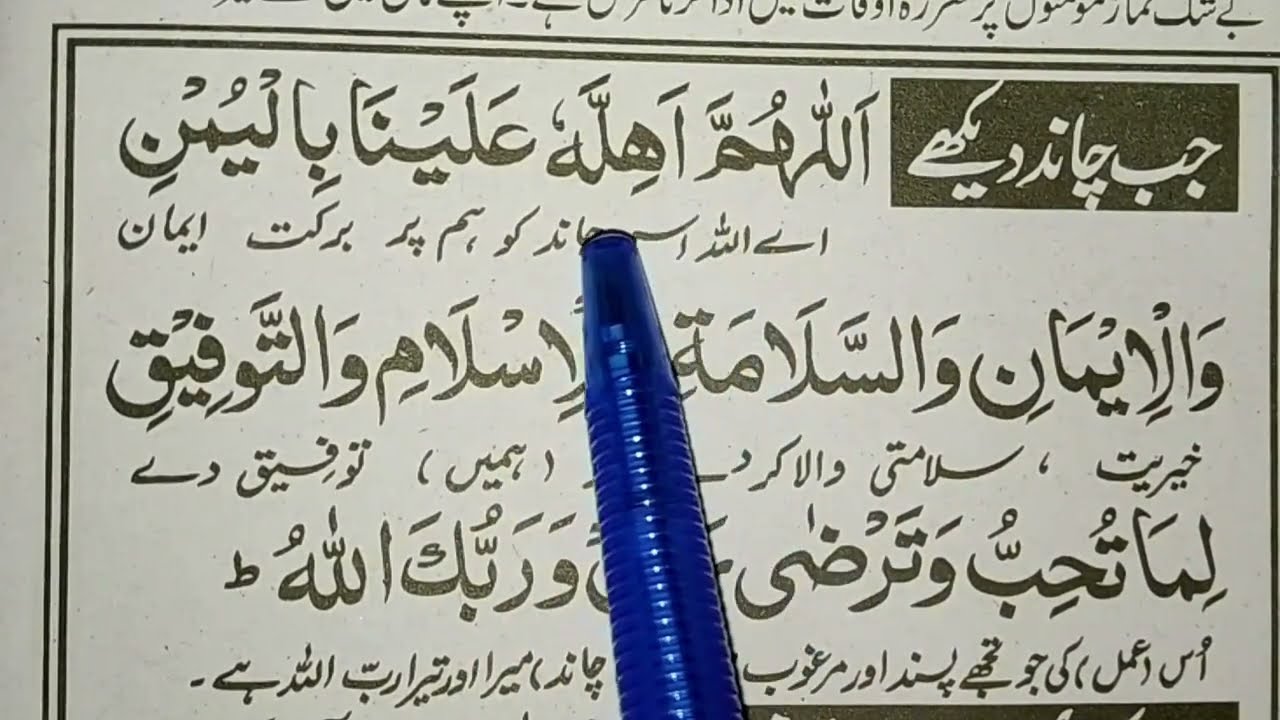 جب چاند دیکھے اَللّٰهُمَّ اَهِلَّهٗ عَلَيْنَا بِالْيُمْنِ
اے اللہ اس چاند کو ہم پر برکت ایمان
وَالْاِيْمَانِ وَالسَّلَامَةِ لْاِسْلَامِ وَالتَّوْفِيْقِ
خیریت ، سلامتی والا کر دے (ہمیں) توفیق دے
لِمَا تُحِبُّ وَتَرْضٰى وَرَبُّكَ اللّٰهُ ط
اُس (عمل) کی جو تجھے پسند اور مرغوب چاند) میرا اور تیرا ربّ اللہ ہے۔